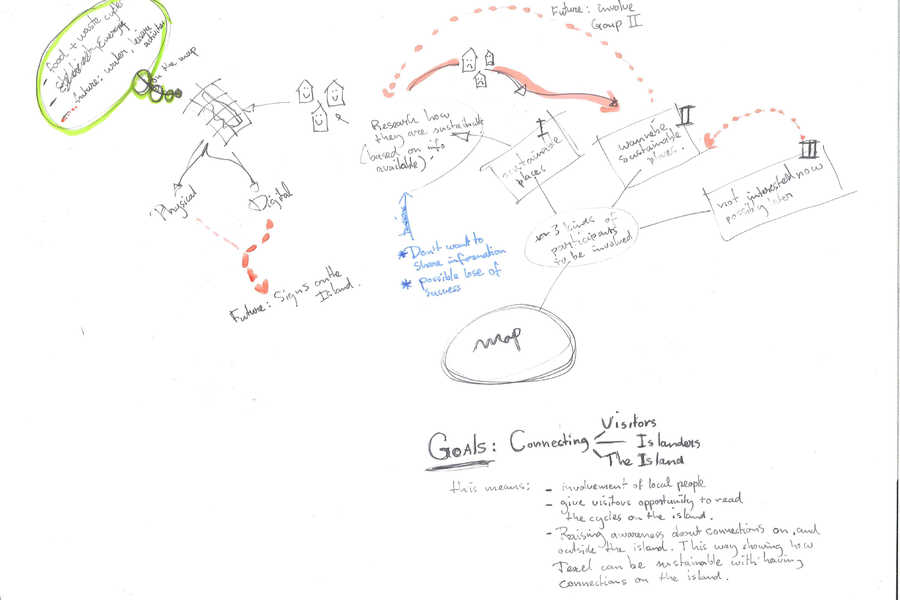 - food + waste cycle
by Energy
future: water,
activities
on the map
Future: involve
Group II
Research how
they are sustainable
(based on info
available).
I
sustainable
places
II
wannabe
sustainable
places.
III
not interested now
possibly later
3 kinds of
participants
to be involved
Physical
Digital
Future: Signs on the
Island.
* Don't want to
share information
* possible lose of
success
map
GOALS: Connecting
Visitors
Islanders
The Island
this means:
- involvement of local people
- give visitous opportunity to read
the cycles on the island.
- Raising awareness about connections on, and
outside the island. This way showing how
Texel can be sustainable with having
connections on the island.